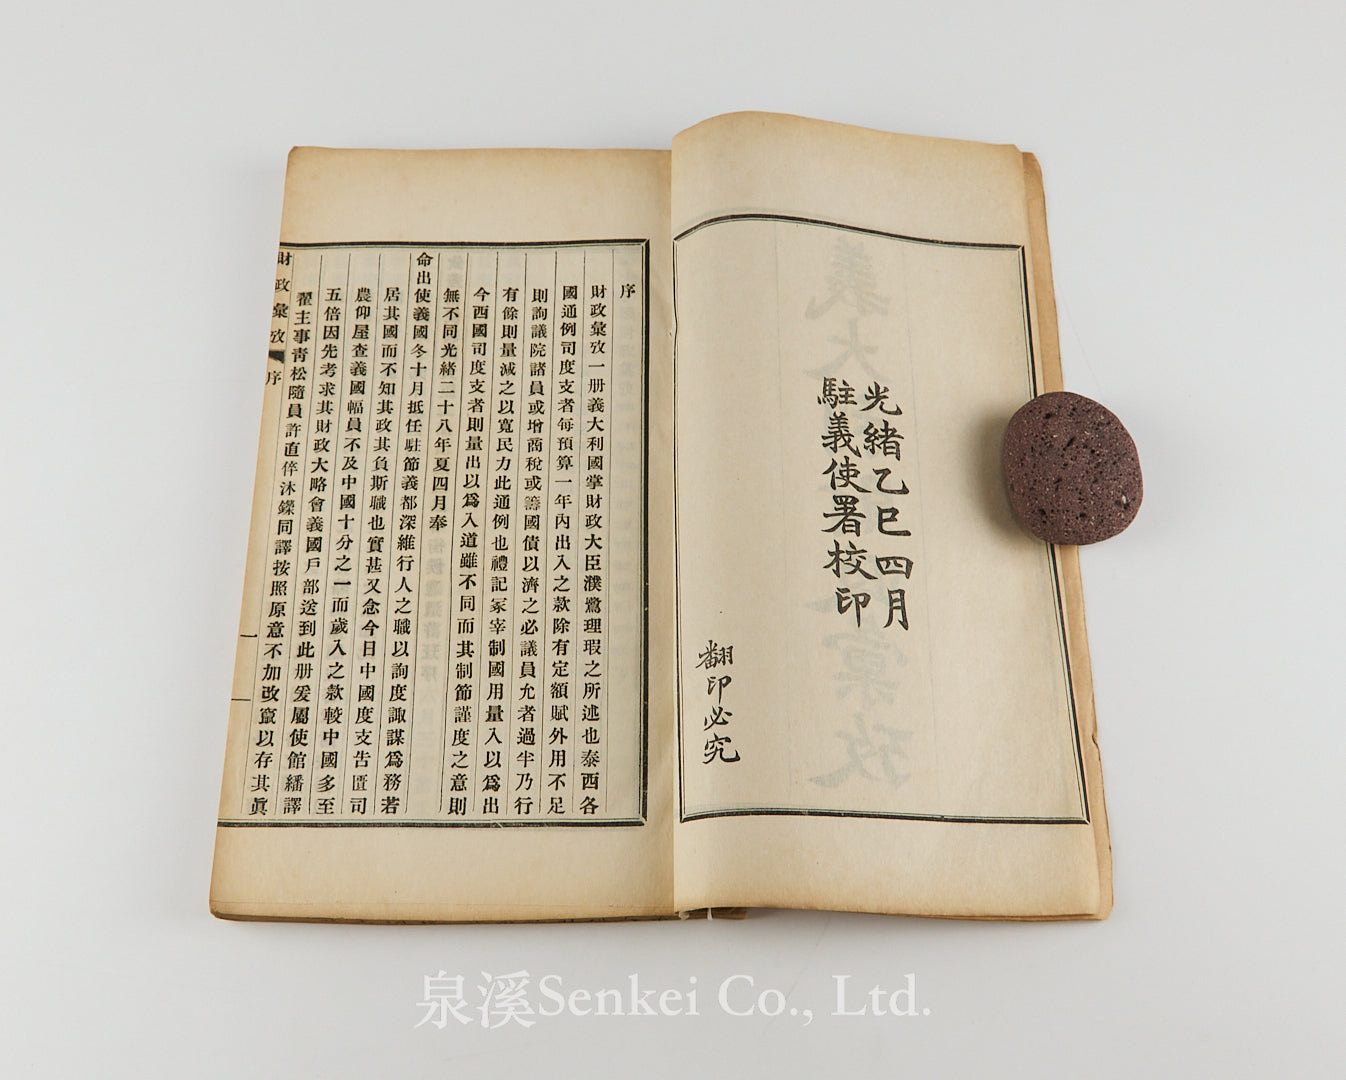 光緒乙巳四月
駐義使署校印
翻印必究
序
財政彙攷一册義大利國掌財政大臣濮鷺理瑕之所述也泰西各
國通例司度支者每預算一年內出入之款除有定額賦外用不足
則詢議院諸員或增商稅或籌國債以濟之必議員允者過半乃行
有餘則量減之以寬民力此通例也禮記冢宰制國用量入以爲出
今西國司度支者則量出以爲入道雖不同而其制節謹度之意則
無不同光緒二十八年夏四月奉
命出使義國冬十月抵任駐節義都深維行人之職以詢度諏謀爲務若
居其國而不知其政其負斯職也實甚又念今日中國度支告匱司
農仰屋查義國幅員不及中國十分之一而歲入之款較中國多至
五倍因先考求其財政大略會義國戶部送到此册爰屬使館繙譯
翟主事青松隨員許直倅沐鑅同譯按照原意不加改竄以存其眞
財政彙攷 序 一
泉溪Senkei Co., Ltd.